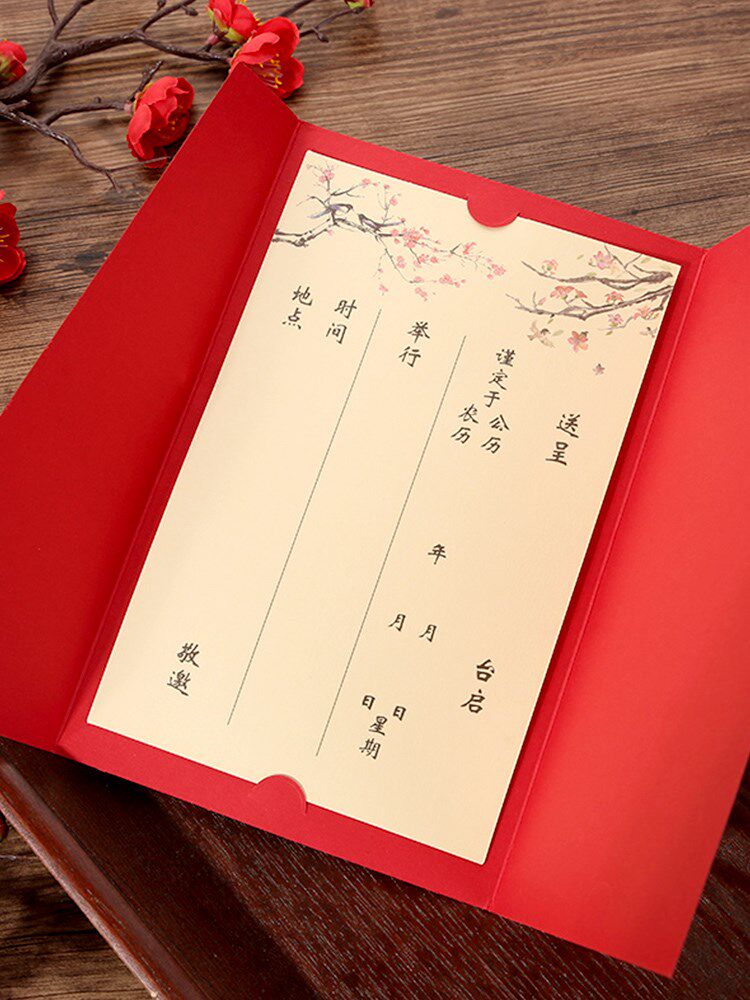 送呈 台启
谨定于 公历 年 月 日
农历 月 日 星期
举行
时间
地点 敬邀